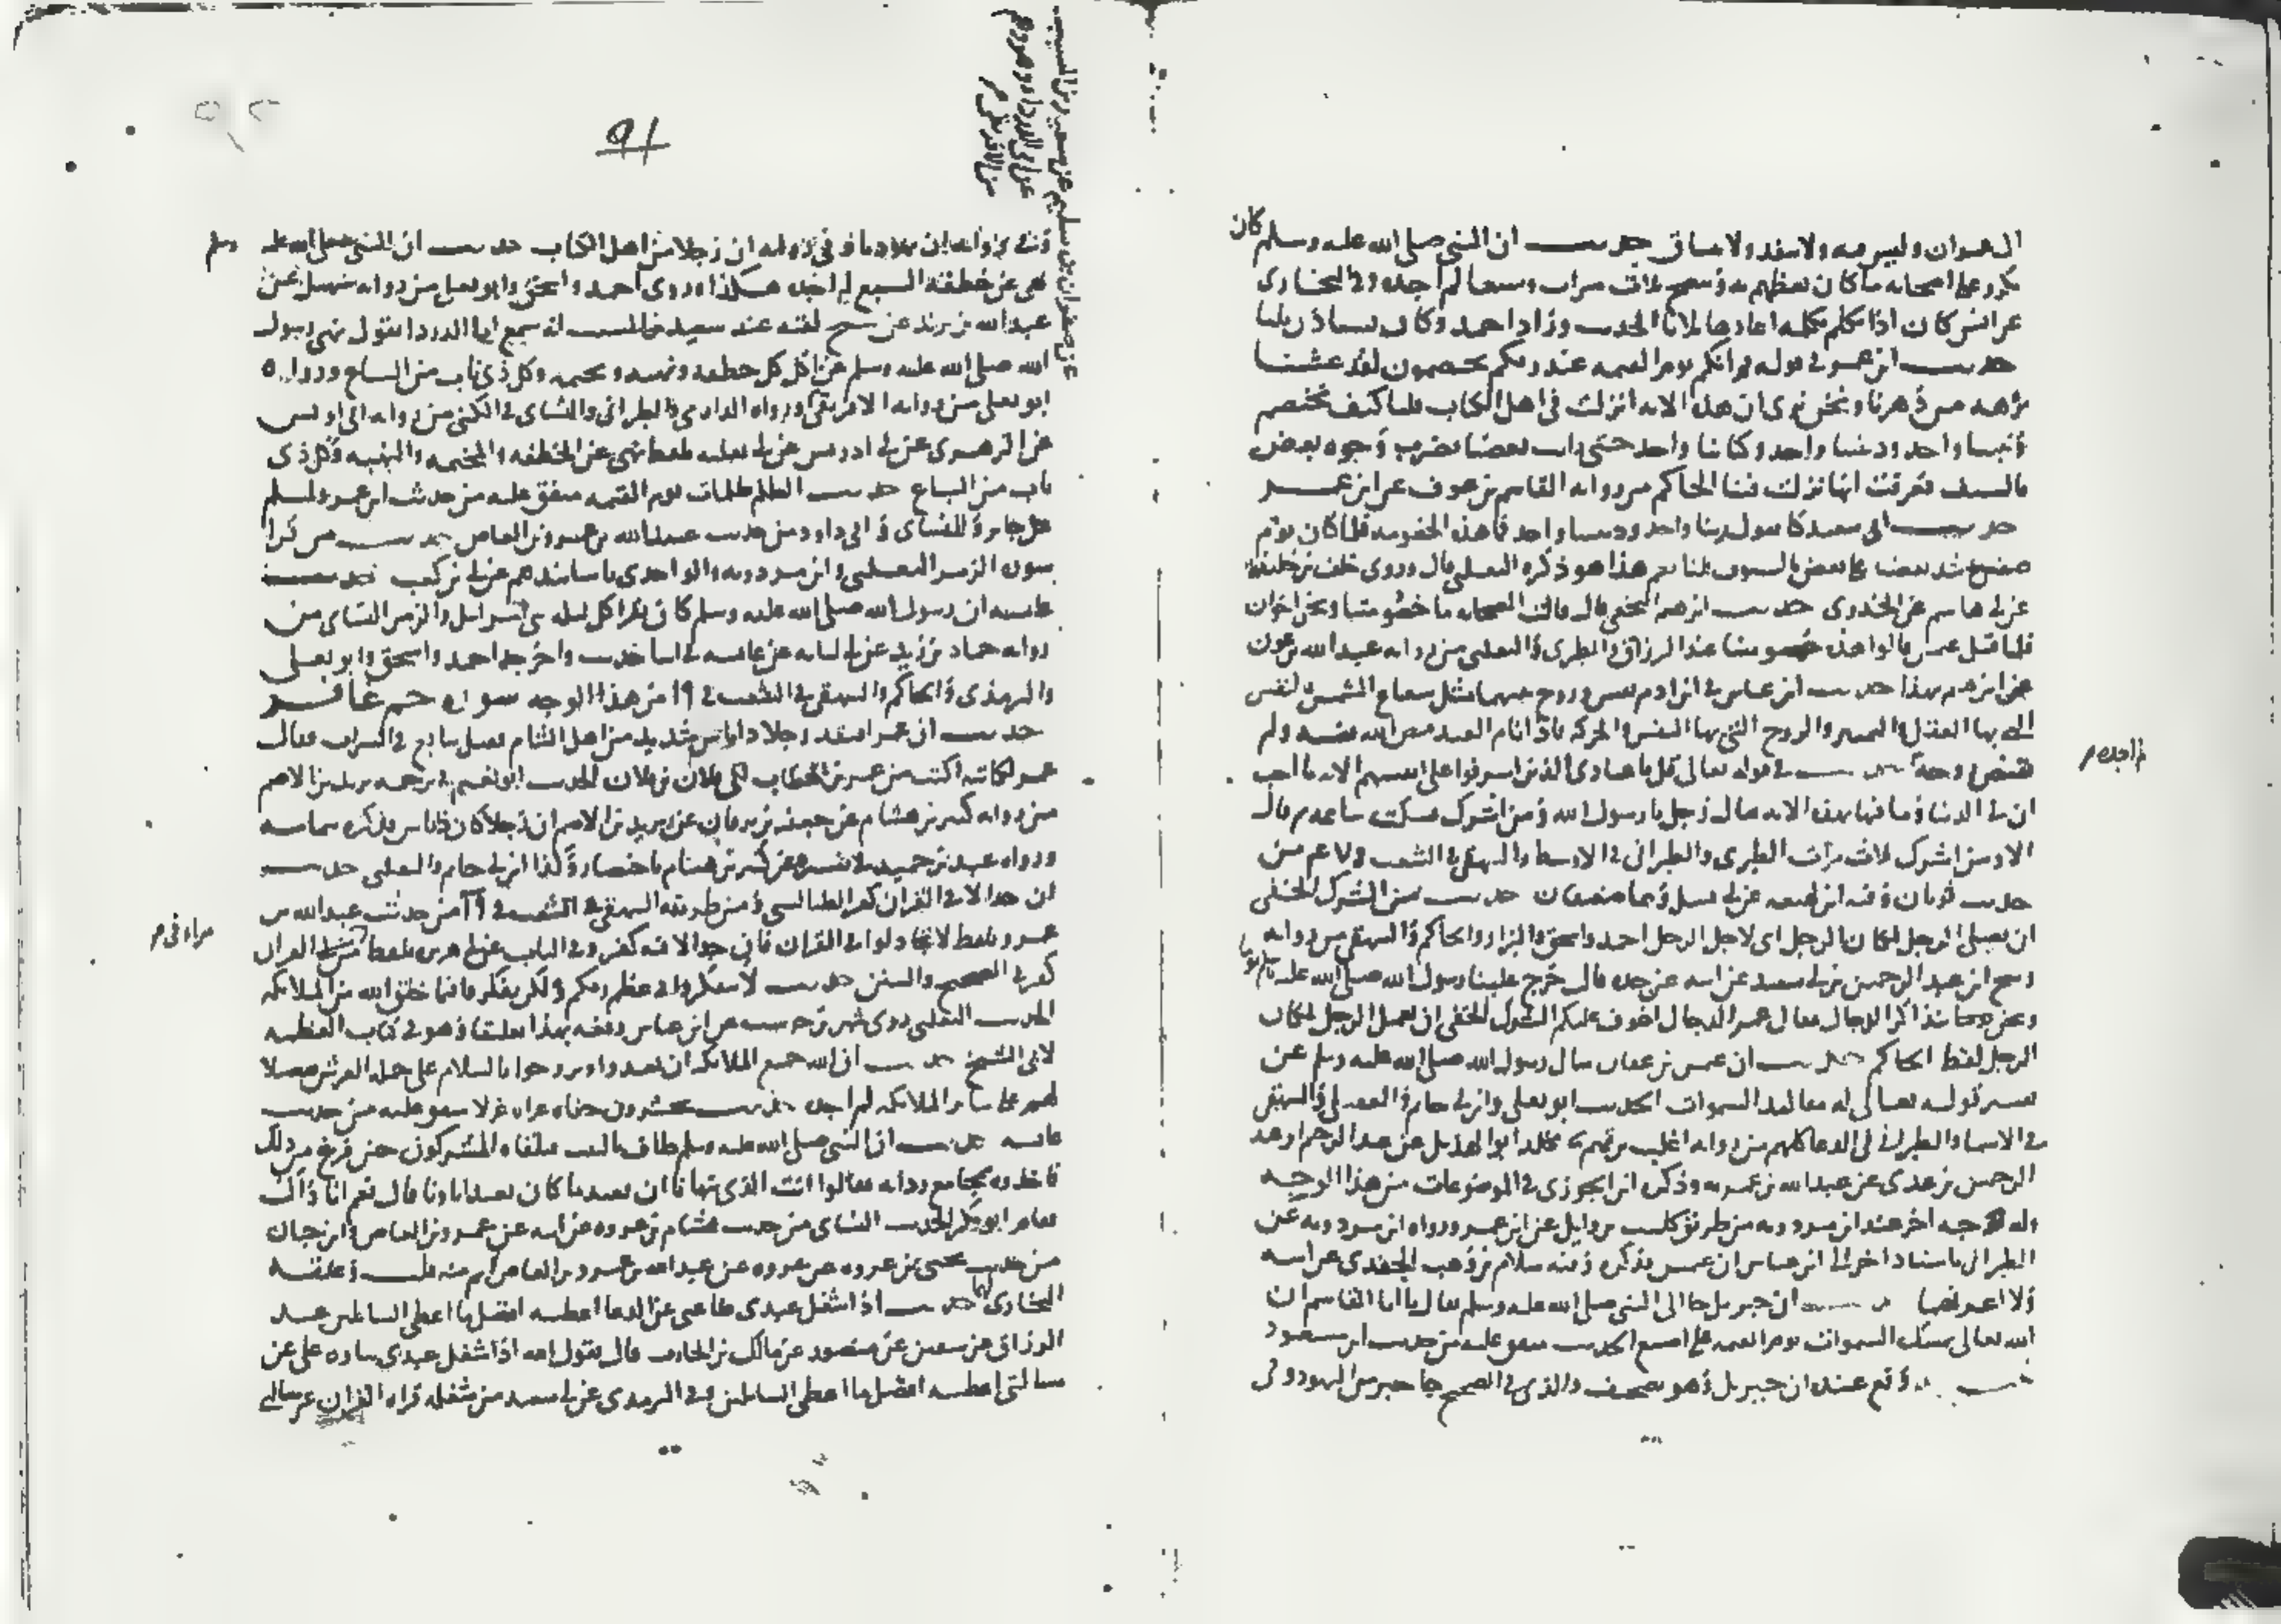 كان
العدوان وليس فيه ولا سند ولا مساق حديث ان النبي صلى الله عليه وسلم
يكرر على اصحابه ما كان يعظهم به وينصح ثلاث مرات وسبعا لم اجده وفي البخاري
عن انس كان اذا تكلم بكلمه اعادها ثلاثا الحديث وزاد احمد وكان يستاذن ثلثا
حديث ابن عمر في قوله ثم انكم يوم القيمه عند ربكم تختصمون لقد عشنا
برهه من دهرنا ونحن نرى ان هذه الايه انزلت في اهل الكتاب قلنا كيف نختصم
ونبينا واحد وديننا واحد وكتابنا واحد حتى رايت بعضنا يضرب وجوه بعض
بالسيف فعرفت انها نزلت فينا الحاكم من روايه القاسم بن عوف عن ابن عمر
حديث ابي سعيد كنا نقول ربنا واحد وديننا واحد فما هذه الخصومه فلما كان يوم
صفين وشد بعضنا على بعض بالسيوف قلنا نعم هذا هو ذكره الثعلبي قال وروى خلف بن خليفه
عن ابي هاشم عن الخدري حديث ابرهيم النخعي قال قالت الصحابه ما خصومتنا ونحن اخوان
فلما قتل عثمن قالوا هذه خصومتنا عبد الرزاق والطبري والثعلبي من روايه عبد الله بن عون
عن ابرهيم بهذا حديث ابن عباس في ابن ادم نفس وروح بينهما مثل شعاع الشمس فالنفس
التي بها العقل والتمييز والروح التي بها النفس والحركه فاذا نام العبد قبض الله نفسه ولم
يقبض روحه حديث في قوله تعالى قل يا عبادي الذين اسرفوا على انفسهم الايه ما احب
لم اجده
ان لي الدنيا وما فيها بهذه الايه فقال رجل يا رسول الله ومن اشرك فسكت ساعه ثم قال
الا ومن اشرك ثلاث مرات الطبري والطبراني في الاوسط والبيهقي في الشعب
حديث ثوبان وفيه ابن لهيعه عن ابي قبيل وهما ضعيفان حديث من الشرك الخفي
ان يصلي الرجل لمكان الرجل اي لاجل الرجل احمد واسحق والبزار والحاكم والبيهقي من روايه
ربيح ابن عبد الرحمن بن ابي سعيد عن ابيه عن جده قال خرج علينا رسول الله صلى الله عليه
ونحن نتذاكر الدجال فقال غير الدجال اخوف عليكم الشرك الخفي ان يعمل الرجل لمكان
الرجل لفظ الحاكم حديث ان عثمن بن عفان سال رسول الله صلى الله عليه وسلم عن
تفسير قوله تعالى له مقاليد السموات الحديث ابو يعلى وابن ابي حاتم والعقيلي والبيهقي
في الاسماء والطبراني في الدعا كلهم من روايه اغلب بن تميم مخلد ابو الهذيل عن عبد الرحيم او عبد
الرحمن بن عدي عن عبد الله بن عمر به وذكره ابن الجوزي في الموضوعات من هذا الوجه
وله وجه اخر عند ابن مردويه من طريق كليب بن وايل عن ابن عمر ورواه ابن مردويه عن
الطبراني باسناد اخر الى ابن عباس ان عثمن فذكره وفيه سلام بن وهب الجندي عن ابيه
ولا اعرفهما حديث ان جبريل جا الى النبي صلى الله عليه وسلم فقال يا ابا القاسم ان
الله تعالى يمسك السموات يوم القيمه على اصبع الحديث متفق عليه من حديث ابن مسعود
وقع عنده ان جبريل وهو تصحيف والذي في الصحيح جا حبر من اليهود وفي
91
عن صفوان بن سليم عن سعيد بن المسيب
عن ابي الدرداء وهو وهم
من الافريقي
وفي روايه ان يهوديا وفي روايه ان رجلا من اهل الكتاب حديث ان النبي صلى الله عليه وسلم
نهى عن خطفة السبع لم اجده هكذا وروى احمد واسحق وابو يعلى من روايه سهيل عن
عبد الله بن يزيد عن شيخ لقيه عند سعيد بن المسيب انه سمع ابا الدرداء يقول نهى رسول
الله صلى الله عليه وسلم عن اكل كل خطفه ونهبه ومجثمه وكل ذي ناب من السباع ورواه
ابو يعلى من روايه الافريقي ورواه الدارمي والطبراني والنسائي في الكنى من روايه ابي اويس
عن الزهري عن ابي ادريس عن ابي ثعلبه بلفظ نهى عن الخطفه والمجثمه والنهبه وكل ذي
ناب من السباع حديث الظلم ظلمات يوم القيمه متفق عليه من حديث ابن عمر ولمسلم
عن جابر وللنسائي وابي داود من حديث عبد الله بن عمرو بن العاص حديث من قرا
سورة الزمر الثعلبي وابن مردويه والواحدي باسانيدهم عن ابي بن كعب حديث
عايشه ان رسول الله صلى الله عليه وسلم كان يقرا كل ليله بني اسرايل والزمر النسائي من
روايه حماد بن زيد عن ابي لبابه عن عايشه في اثنا حديث واخرجه احمد واسحق وابو يعلى
والترمذي والحاكم والبيهقي في الشعب في 19 من هذا الوجه سورة حم غافر
حديث ان عمر افتقد رجلا ذا باس شديد من اهل الشام فقيل تتابع في الشراب فقال
عمر لكاتبه اكتب من عمر بن الخطاب الى فلان بن فلان الحديث ابو نعيم في ترجمه يزيد بن الاصم
من روايه كثير بن هشام عن جعفر بن برقان عن يزيد بن الاصم ان رجلا كان ذا باس فذكره بتمامه
ورواه عبد بن حميد في تفسيره عن كثير بن هشام باختصار وكذا ابن ابي حاتم والثعلبي حديث
ان جدالا في القران كفر الطيالسي ومن طريقه البيهقي في الشعب في 19 من حديث عبد الله بن
عمرو بلفظ لا تجادلوا في القران فان جدالا فيه كفر وفي الباب عن ابي هريره بلفظ مراء في القران
مراء في
كفر في الصحيح والسنن حديث لا تتفكروا في عظم ربكم ولكن تفكروا فيما خلق الله من الملائكه
الحديث الثعلبي روى شهر بن حوشب عن ابن عباس رفعه بهذا تعليقا وهو في كتاب العظمه
لابي الشيخ حديث ان الله جمع الملائكه ان يغدوا ويروحوا بالسلام على حمله العرش تفضيلا
لهم على سائر الملائكه لم اجده حديث يحشرون حفاه عراه غرلا متفق عليه من حديث
عايشه حديث ان النبي صلى الله عليه وسلم طاف بالبيت فلقاه المشركون حين فرغ من ذلك
فاخذوه بمجامع ردائه فقالوا انت الذي تنهانا ان نعبد ما كان يعبد اباونا قال نعم انا ذاك
فقام ابو بكر الحديث النسائي من حديث هشام بن عروه عن ابيه عن عمرو بن العاص وابن حبان
من حديث يحيى بن عروه عن عروه عن عبد الله بن عمرو بن العاص اتم منه قلت وعلقه
البخاري حديث اذا شغل عبدي طاعتي عن الدعا اعطيه افضل ما اعطي السائلين عبد
الرزاق عن سفين عن منصور عن مالك بن الحارث قال يقول الله اذا شغل عبدي ثناوه علي عن
مسالتي اعطيه افضل ما اعطي السائلين وفي الترمذي عن ابي سعيد من شغله قراه القران عن مسالتي